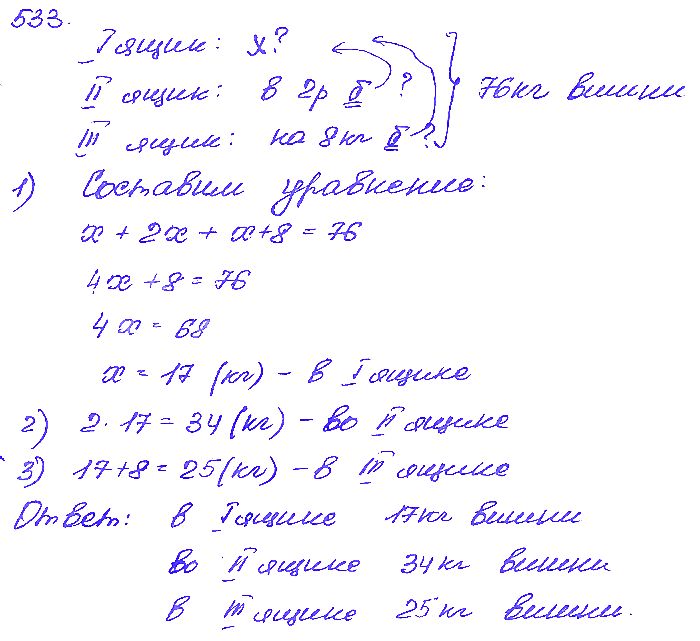 533.
I ящик: x?
II ящик: в 2р б ?
III ящик: на 8кг б ? 76кг вишни
1) Составим уравнение:
x + 2x + x+8 = 76
4x +8 = 76
4x = 68
x = 17 (кг) - в I ящике
2) 2·17 = 34 (кг) - во II ящике
3) 17+8 = 25 (кг) - в III ящике
Ответ: в I ящике 17кг вишни
во II ящике 34кг вишни
в III ящике 25кг вишни.